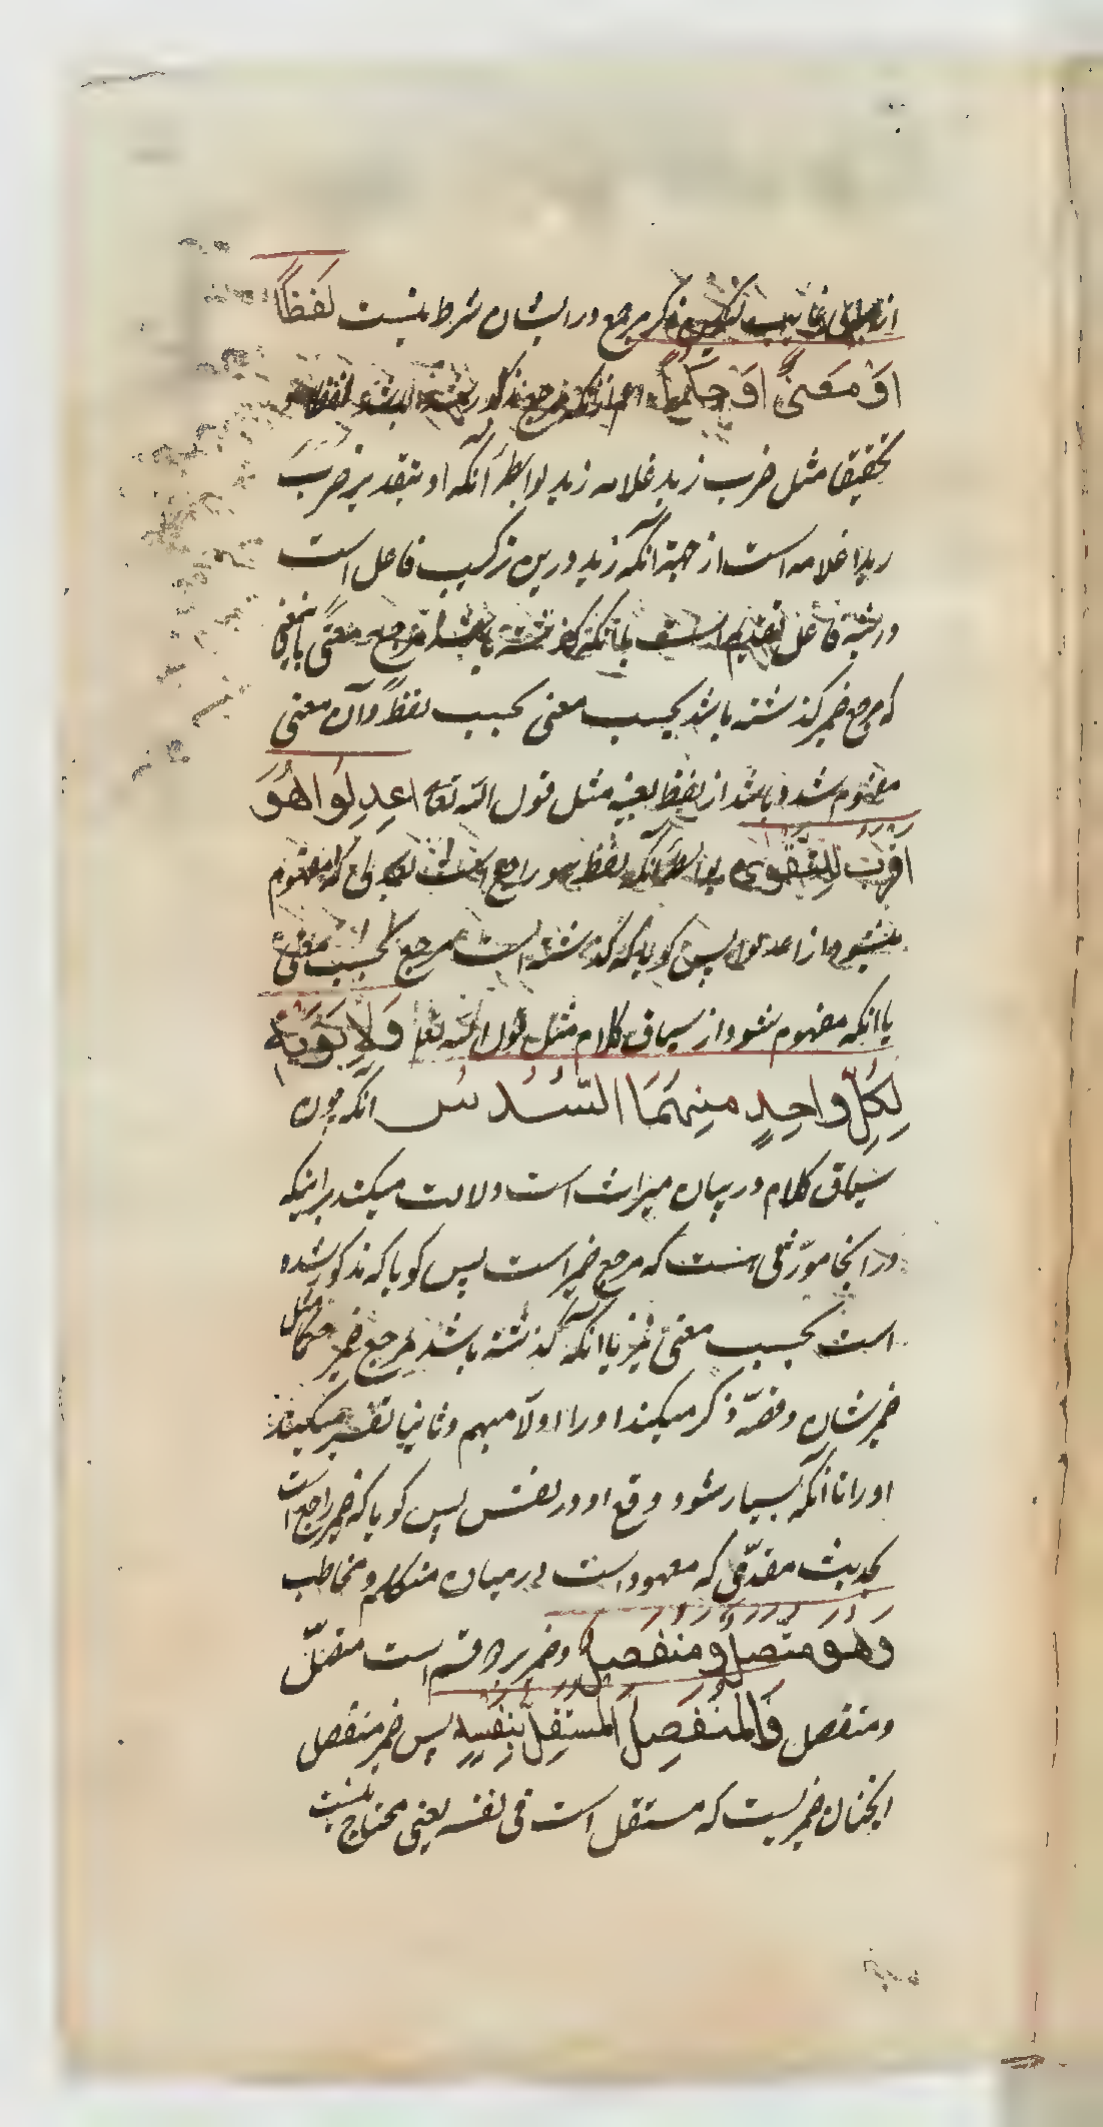 ذکر مرجع در ایشان شرط نیست لَفظاً
اَوْ مَعنیً اَوْ حکماً مرجع مذکور شده باشد لفظا
تحقیقا مثل ضرب زید غلامه زید بواسطهٔ آنکه او بتقدیر ضَرَبَ
زید غلامه است از جهة آنکه زید درین ترکیب فاعل است
و رتبهٔ فاعل تقدیم است یا آنکه گذشته باشد مرجع معنیً باین معنی
که مرجع ضمیر گذشته باشد بحسب معنی بحسب لفظ و آن معنی
مفهوم شده باشد از لفظ بعینه مثل قول الله تعا اعدِلوُا هُوَ
اَقرَبُ لِلتَّقوی بواسطهٔ آنکه لفظ هو راجع است بعدلی که مفهوم
میشود از اعدلوا پس گویا که گذشته است مرجع بحسب معنی
یا آنکه مفهوم شود از سیاق کلام مثل قول الله تعا وَلِاَبَوَیْهِ
لِکُلِّ واحِدٍ مِنهُمَا السُّدُسُ آنکه چون
سیاق کلام در بیان میراث است دلالت میکند بر اینکه
در اینجا مورّثی هست که مرجع ضمیر است پس گویا که مذکور شده
است بحسب معنی نیز یا آنکه گذشته باشد مرجع ضمیر حکماً مثل
ضمیر شان و قصّه ذکر میکند او را اولاً مبهم و ثانیا تفسیر میکند
او را تا آنکه بسیار شود وقع او در نفس پس گویا که ضمیر راجع است
بحدیث مقدّمی که معهود است در میان متکلم و مخاطب
وَهُوَ مُتَّصِلٌ وَمُنفَصِلٌ و ضمیر بر دو قسم است متصل
و منفصل فَالمُنْفَصِلُ المُستَقِلُّ بِنَفْسِهِ پس ضمیر منفصل
آنچنان ضمیریست که مستقل است فی نفسه یعنی محتاج نیست